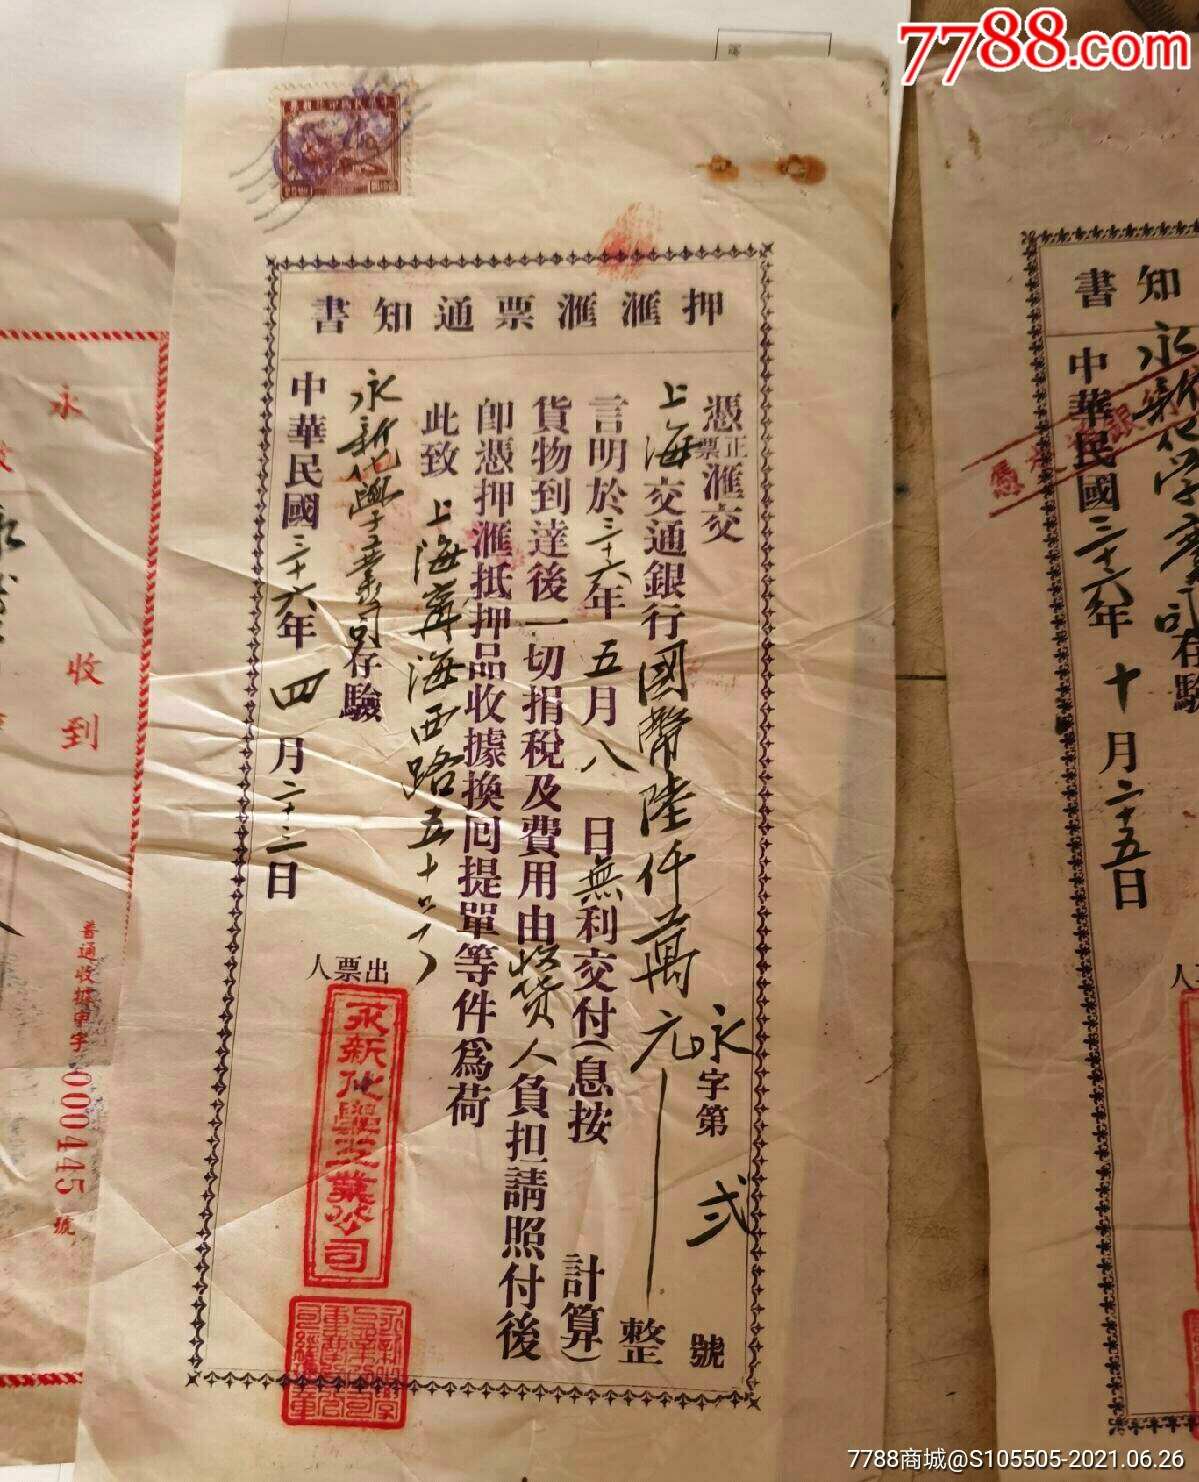 7788.com
押滙滙票通知書
永字第弍號
憑正票滙交
上海交通銀行國幣陸仟萬元整
言明於三十六年五月八日無利交付(息按 計算)
貨物到達後一切捐稅及費用由收貨人負担請照付後
卽憑押滙抵押品收據換囘提單等件爲荷
此致 上海寧海西路五十
永新化學業公司存驗
中華民國三十六年四月二十三日
出票人
永新化學工業公司
知書
永新化学
存驗
中華民國三十六年十月二十五日
永
收到
普通收據申字000445號
7788商城@S105505-2021.06.26